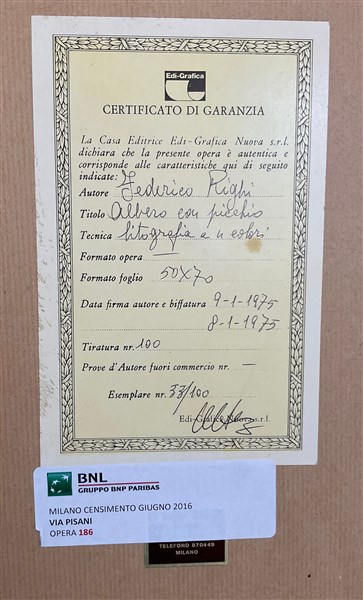 Edi-Grafica
CERTIFICATO DI GARANZIA
La Casa Editrice Edi-Grafica Nuova s.r.l.
dichiara che la presente opera è autentica e
corrisponde alle caratteristiche qui di seguito
indicate:
Autore Federico Righi
Titolo Albero con picchio
Tecnica litografia a colori
Formato opera —
Formato foglio 50X70
Data firma autore e biffatura 9-1-1975
8-1-1975
Tiratura nr. 100
Prove d'Autore fuori commercio nr. —
Esemplare nr. 33/100
Edi-Grafica Nuova s.r.l.
BNL
GRUPPO BNP PARIBAS
MILANO CENSIMENTO GIUGNO 2016
VIA PISANI
OPERA 186
TELEFONO 870449
MILANO